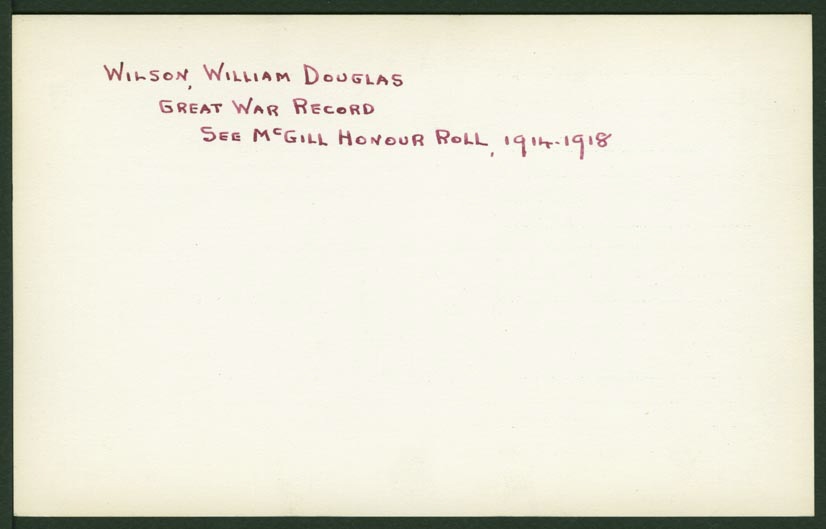 WILSON, WILLIAM DOUGLAS
GREAT WAR RECORD
SEE McGILL HONOUR ROLL, 1914-1918